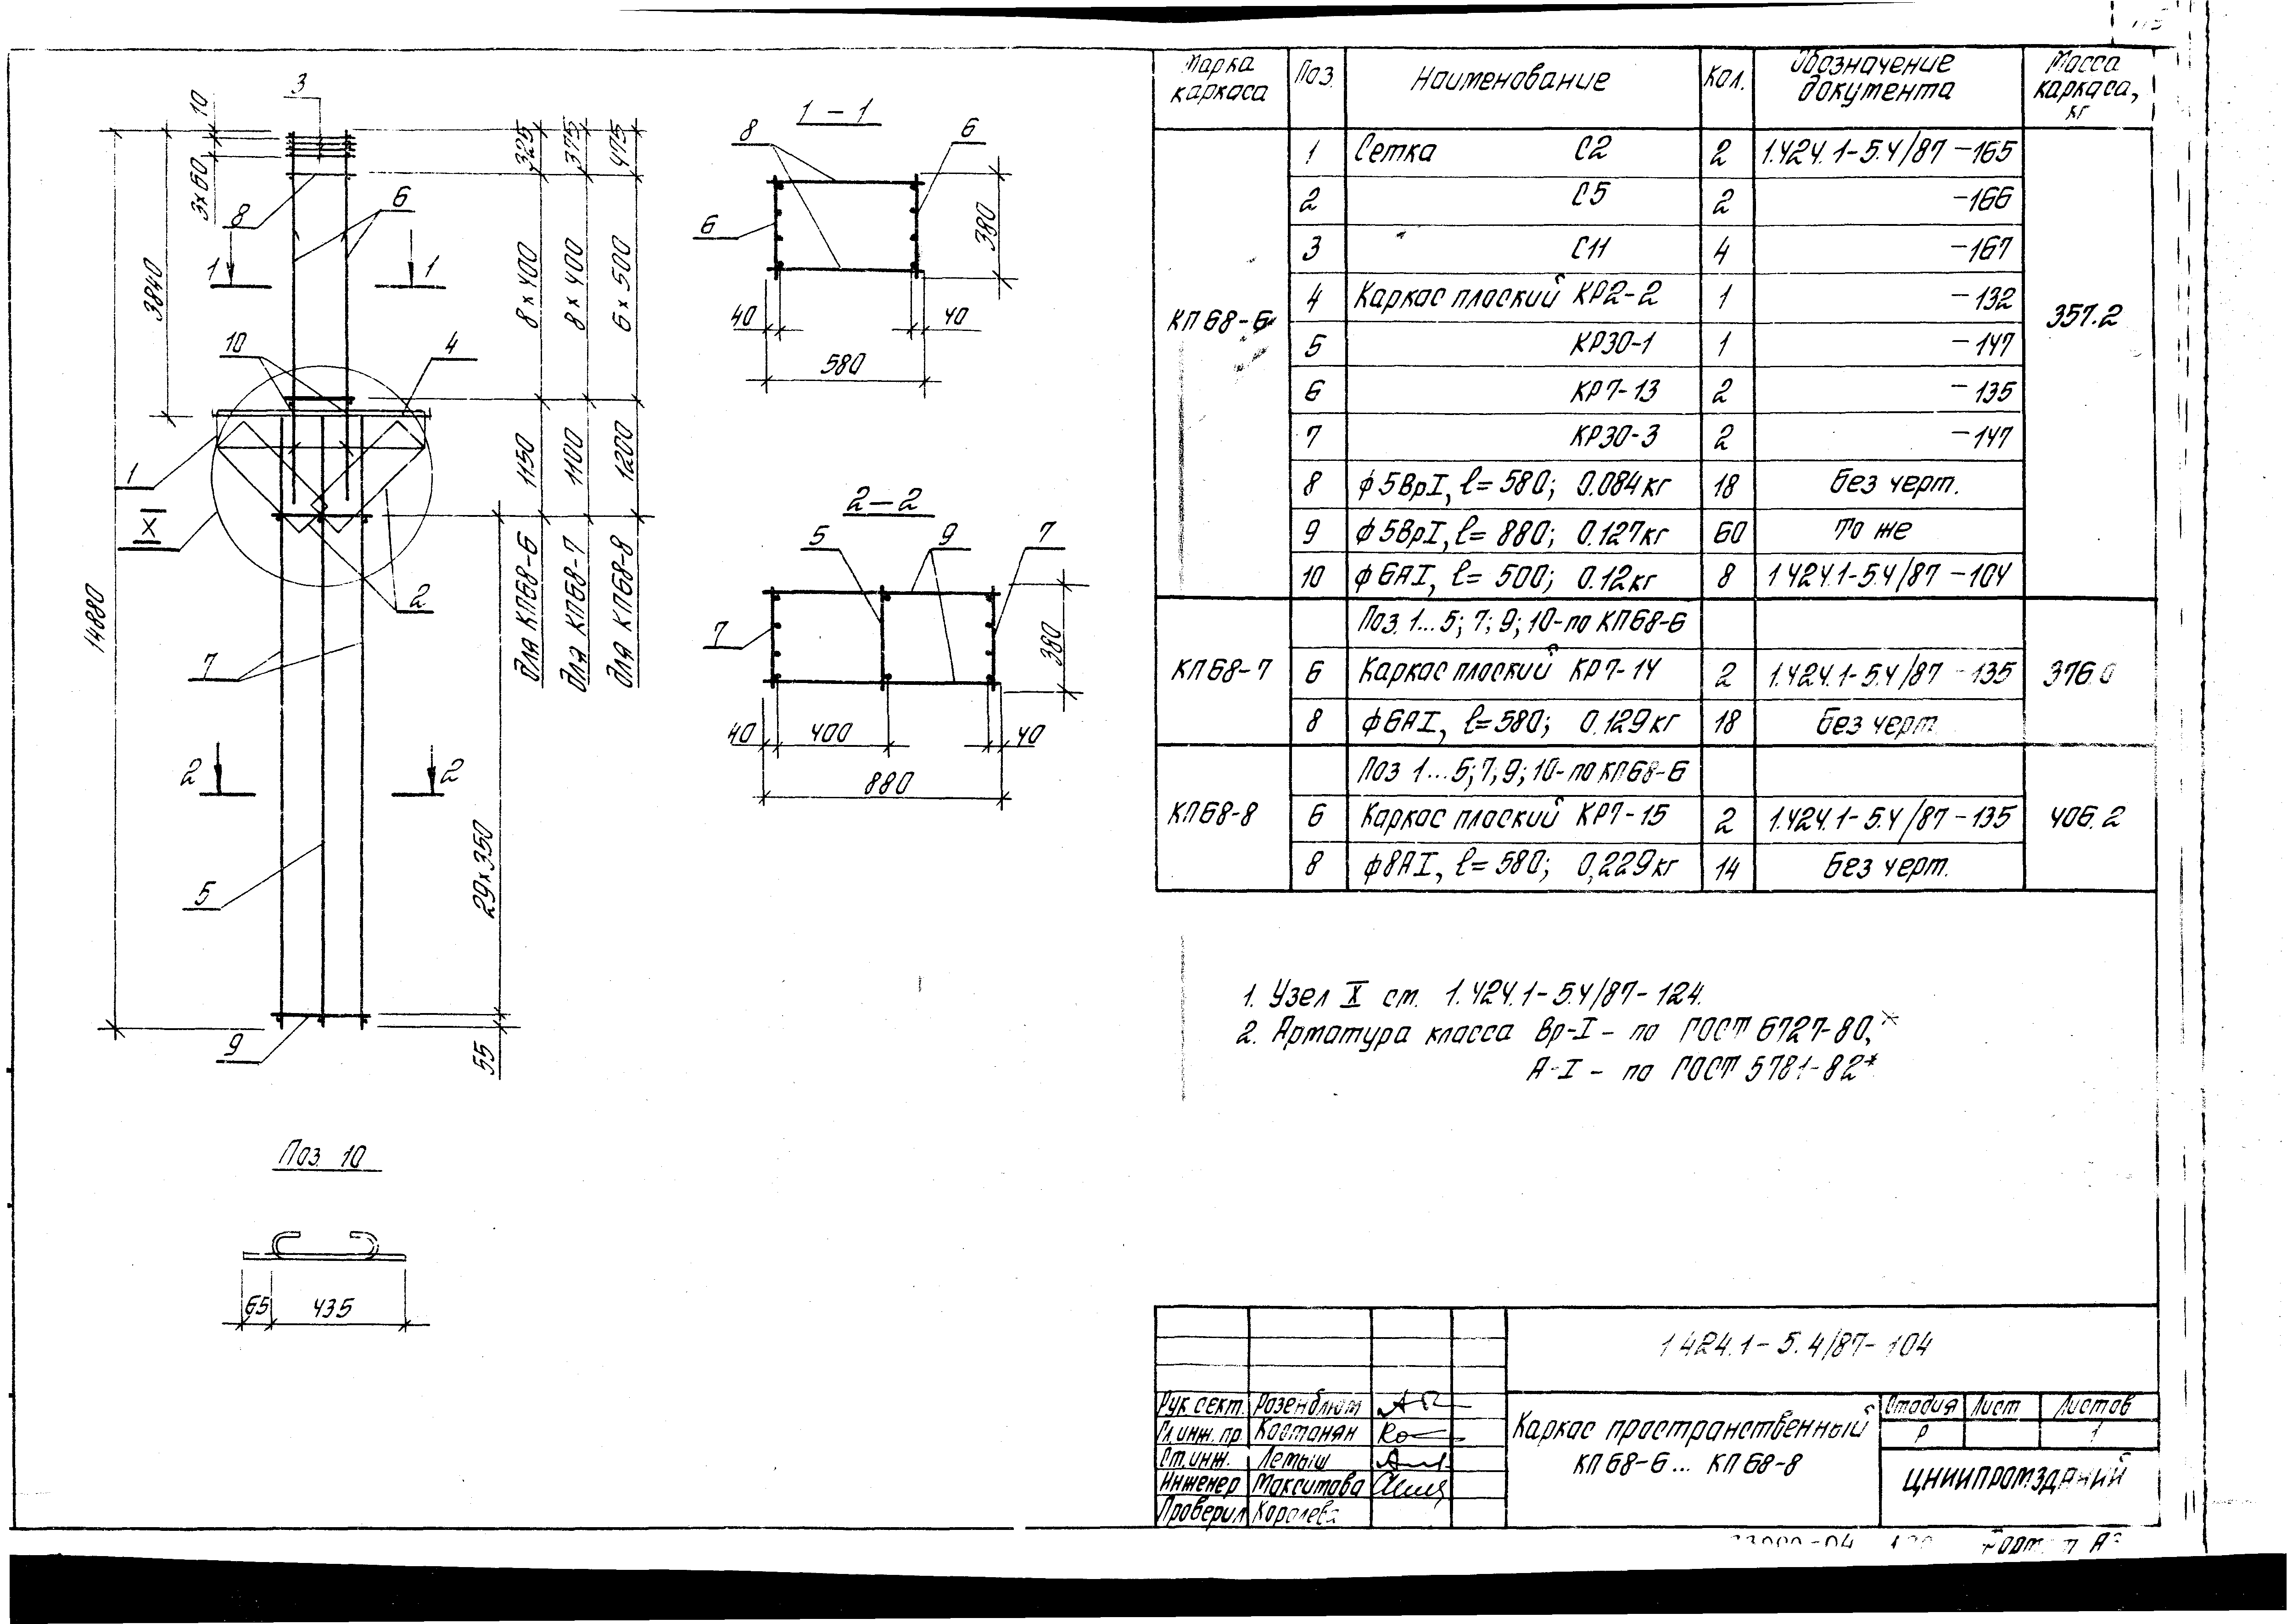 3
10
3×60
8
6
1
1
3840
10
4
1
X
2
14880
7
2
2
5
9
325
375
475
8×400
8×400
6×500
1150
1100
1200
для КП68-6
для КП68-7
для КП68-8
29×350
55
1-1
8
6
6
380
40
40
580
2-2
5
9
7
7
380
40
400
40
880
Поз. 10
65
435
Марка каркаса
Поз.
Наименование
Кол.
Обозначение документа
Масса каркаса, кг
КП68-6
357.2
1 Сетка С2 2 1.424.1-5.4/87-165
2 С5 2 -166
3 С11 4 -167
4 Каркас плоский КР2-2 1 -132
5 КР30-1 1 -147
6 КР7-13 2 -135
7 КР30-3 2 -147
8 ф5ВрI, ℓ=580; 0.084кг 18 Без черт.
9 ф5ВрI, ℓ=880; 0.127кг 60 То же
10 ф6АI, ℓ=500; 0.12кг 8 1.424.1-5.4/87-104
Поз. 1...5; 7; 9; 10-по КП68-6
КП68-7 6 Каркас плоский КР7-14 2 1.424.1-5.4/87-135 376.0
8 ф6АI, ℓ=580; 0.129кг 18 Без черт.
Поз. 1...5; 7; 9; 10-по КП68-6
КП68-8 6 Каркас плоский КР7-15 2 1.424.1-5.4/87-135 406.2
8 ф8АI, ℓ=580; 0,229кг 14 Без черт.
1. Узел X см. 1.424.1-5.4/87-124.
2. Арматура класса Вр-I - по ГОСТ 6727-80,*
А-I - по ГОСТ 5781-82*
1.424.1-5.4/87-104
Рук. сект. Розенблюм
Гл. инж. пр. Костанян
Ст. инж. Лемыш
Инженер Максимова
Проверил Королева
Каркас пространственный
КП68-6... КП68-8
Стадия Лист Листов
Р 1
ЦНИИПРОМЗДАНИЙ
Формат А3